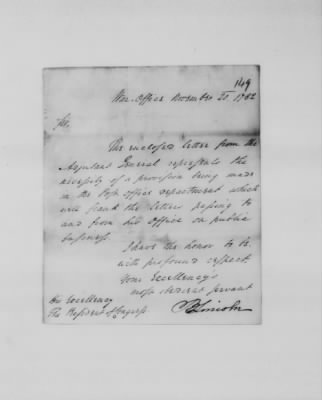 149
War-Office November 20 1782
Sir,
The enclosed letter from the
Adjutant General represents the
necessity of a provision being made
in the Post office department which
will frank the letters passing to
and from his Office on public
business.
I have the honor to be
with profound respect
Your Excellency's
most obedient servant
B Lincoln
His Excellency
The President of Congress